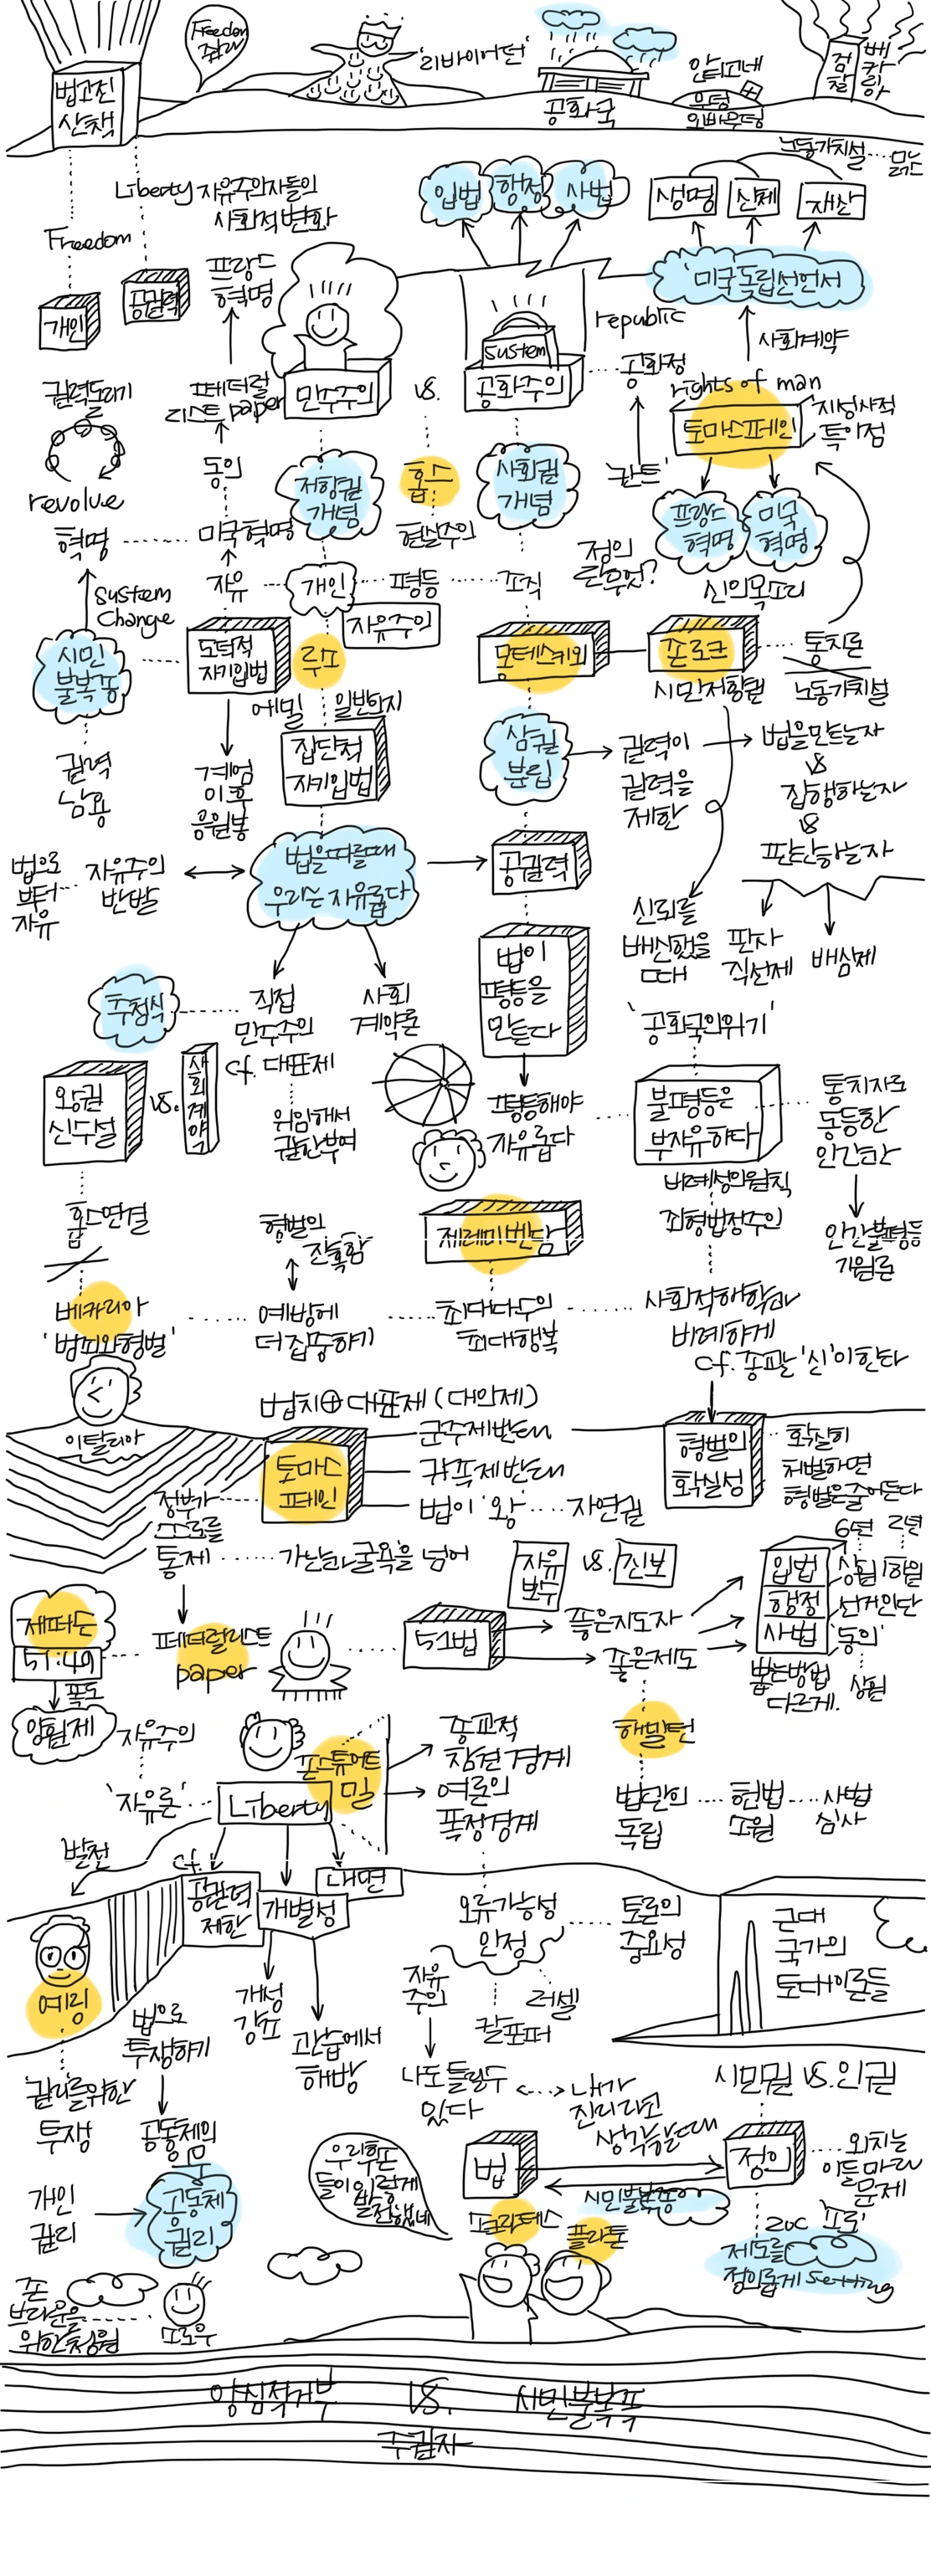 법고전
산책
Freedom
'리바이어던'
공화국
안티고네
무덤
오빠무덤
검찰
베카리아
Liberty 자유주의자들의
사회적 변화
Freedom
개인
공권력
프랑스
혁명
입법
행정
사법
생명
신체
재산
노동가치설
미국독립선언서
사회계약
republic
공화정
system
민주주의
vs.
공화주의
페더럴
리스트 paper
동의
미국혁명
자유
권력돌리기
revolve
혁명
System
Change
시민
불복종
권력
남용
저항권
개념
홉스
현실주의
사회권
개념
칸트
rights of man
토마스페인
지성사적
특이점
프랑스
혁명
미국
혁명
신의 목소리
정의
란 무엇?
개인
평등
조직
자유주의
도덕적
자기입법
루소
에밀
일반의지
집단적
자기입법
계엄
이후
응원봉
몽테스키외
존로크
시민저항권
통치론
노동가치설
삼권
분립
권력이
권력을
제한
법을만드는자
vs
집행하는자
vs
판단하는자
법으로
부터
자유
자유주의
반발
법을따를때
우리는 자유롭다
공권력
신뢰를
배신했을
때
판사
직선제
배심제
추첨식
직접
민주주의
cf. 대표제
위임해서
권한부여
사회
계약론
법이
평등을
만든다
평등해야
자유롭다
'공화국의위기'
불평등은
부자유하다
통치자로
동등한
인간관
인간불평등
기원론
왕권
신수설
vs.
사회계약
홉스연결
베카리아
'범죄와형벌'
이탈리아
형벌의
잔혹함
예방에
더 집중하기
제레미벤담
최대다수의
최대행복
비례성의원칙
죄형법정주의
사회적해악과
비례하게
cf. 종교는 '신'이한다
법치⊕대표제 (대의제)
토마스
페인
군주제반대
귀족제반대
법이 '왕'
자연권
형벌의
확실성
확실히
처벌하면
형벌은줄어든다
정부가
스스로를
통제
가난과, 굴욕을 넘어
자유
보수
vs.
진보
제퍼슨
51:49
폭도
양원제
페더럴리스트
paper
51법
좋은지도자
좋은제도
입법
행정
사법
6년
2년
상원
하원
선거인단
'동의'
상원
뽑는방법
다르게.
해밀턴
법관의
독립
헌법
우월
사법
심사
자유주의
'자유론'
Liberty
존스튜어트
밀
종교적
참견 경계
여론의
폭정경계
발전
cf.
공권력
제한
개별성
내면
개성
강조
관습에서
해방
오류가능성
인정
토론의
중요성
자유
주의
칼포퍼
러셀
나도 틀릴수
있다
내가
진리라고
생각할때
근대
국가의
토대이론들
예링
'권리를위한
투쟁
법으로
투쟁하기
공동체의
의무
개인
권리
공동체
권리
우리후손
들이 이렇게
발전했네
법
정의
시민불복종
시민권 vs. 인권
외치는
이들마다
문제
소크라테스
플라톤
20C
제도를
정의롭게 setting
존
브라운을
위한청원
소로우
양심적거부
vs.
시민불복종
주권자